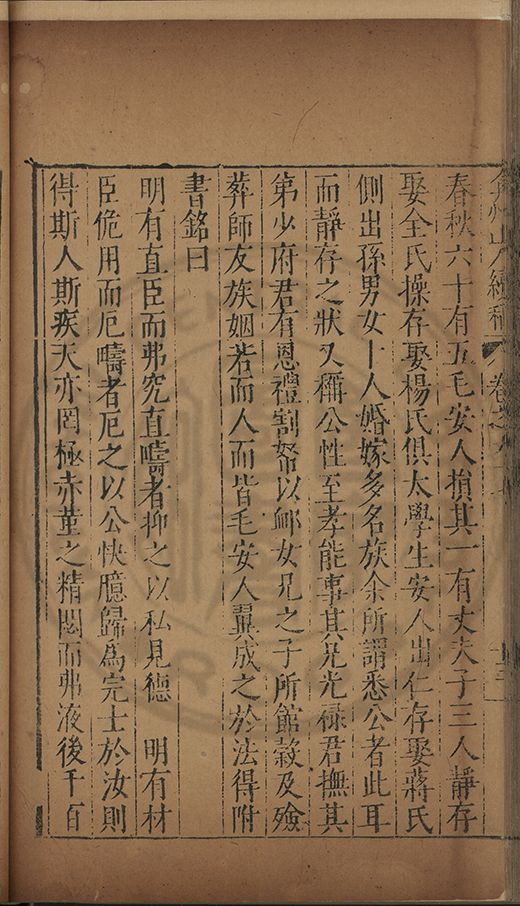 弇州山人續稿 卷之
春秋六十有五毛安人損其一有丈夫子三人靜存
娶全氏操存娶楊氏俱太學生安人出仁存娶蔣氏
側出孫男女十人婚嫁多名族余所謂悉公者此耳
而靜存之狀又稱公性至孝能事其兄光祿君撫其
第少府君有恩禮割帑以䘏女兄之子所館穀及殮
葬師友族姻若而人而皆毛安人翼成之於法得附
書銘曰
明有直臣而弗究直疇者抑之以私見德 明有材
臣佹用而厄疇者厄之以公快臆歸為完士於汝則
得斯人斯疾天亦罔極赤堇之精閟而弗液後千百